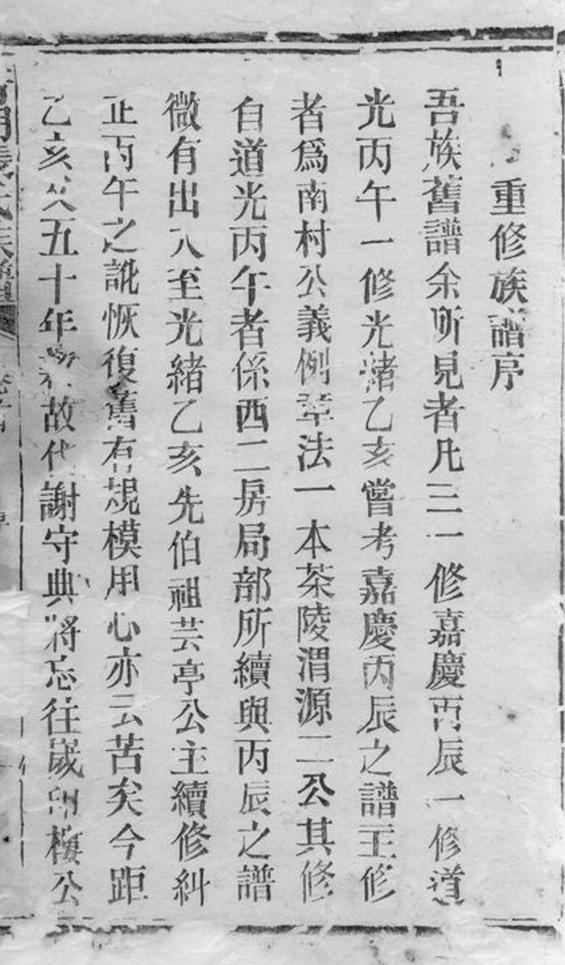 重修族譜序
吾族舊譜余所見者凡三一修嘉慶丙辰一修道
光丙午一修光緒乙亥嘗考嘉慶丙辰之譜主修
者爲南村公義例章法一本茶陵渭源二公其修
自道光丙午者係西二房局部所續與丙辰之譜
微有出入至光緒乙亥先伯祖芸亭公主續修糾
正丙午之訛恢復舊有規模用心亦云苦矣今距
乙亥又五十年新故代謝守典將忘往歲印樓公
氏族譜